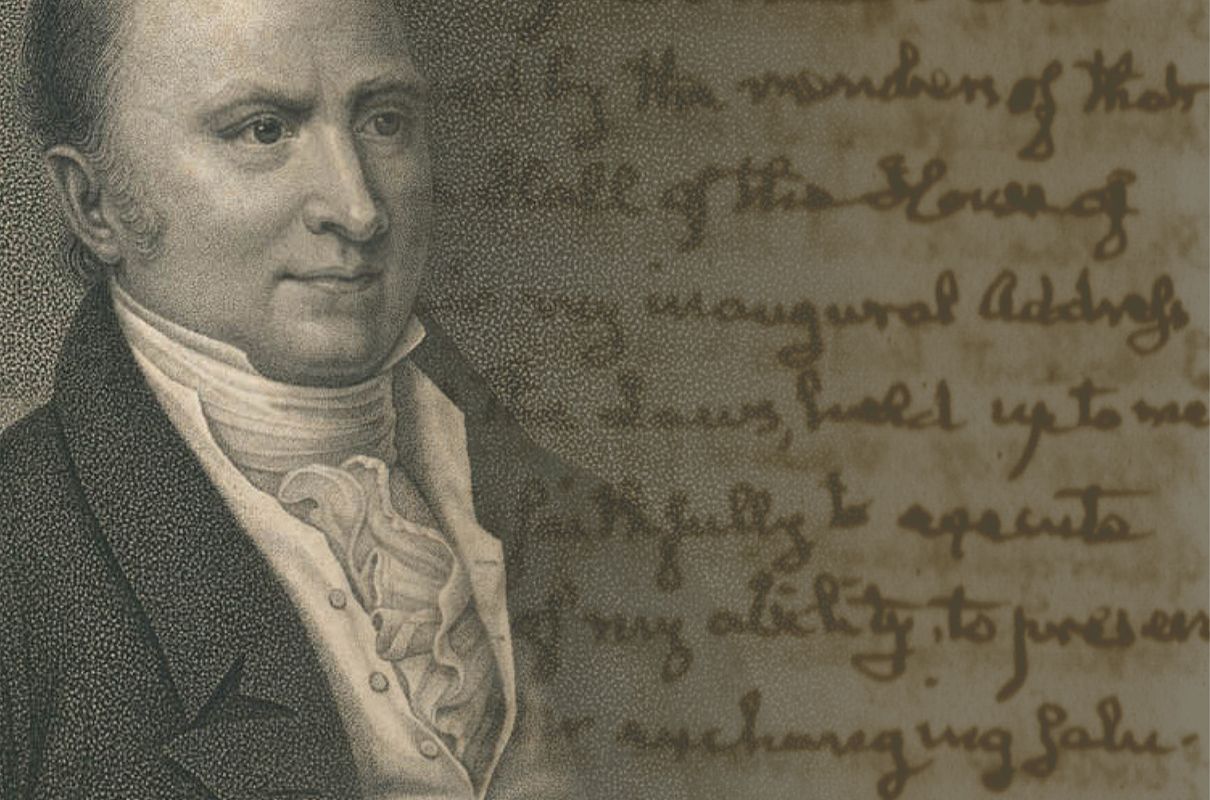 by the members of that
Hall of the House of
my inaugural Address
Laws, held up to me
faithfully to execute
of my ability, to preser
exchanging salu-